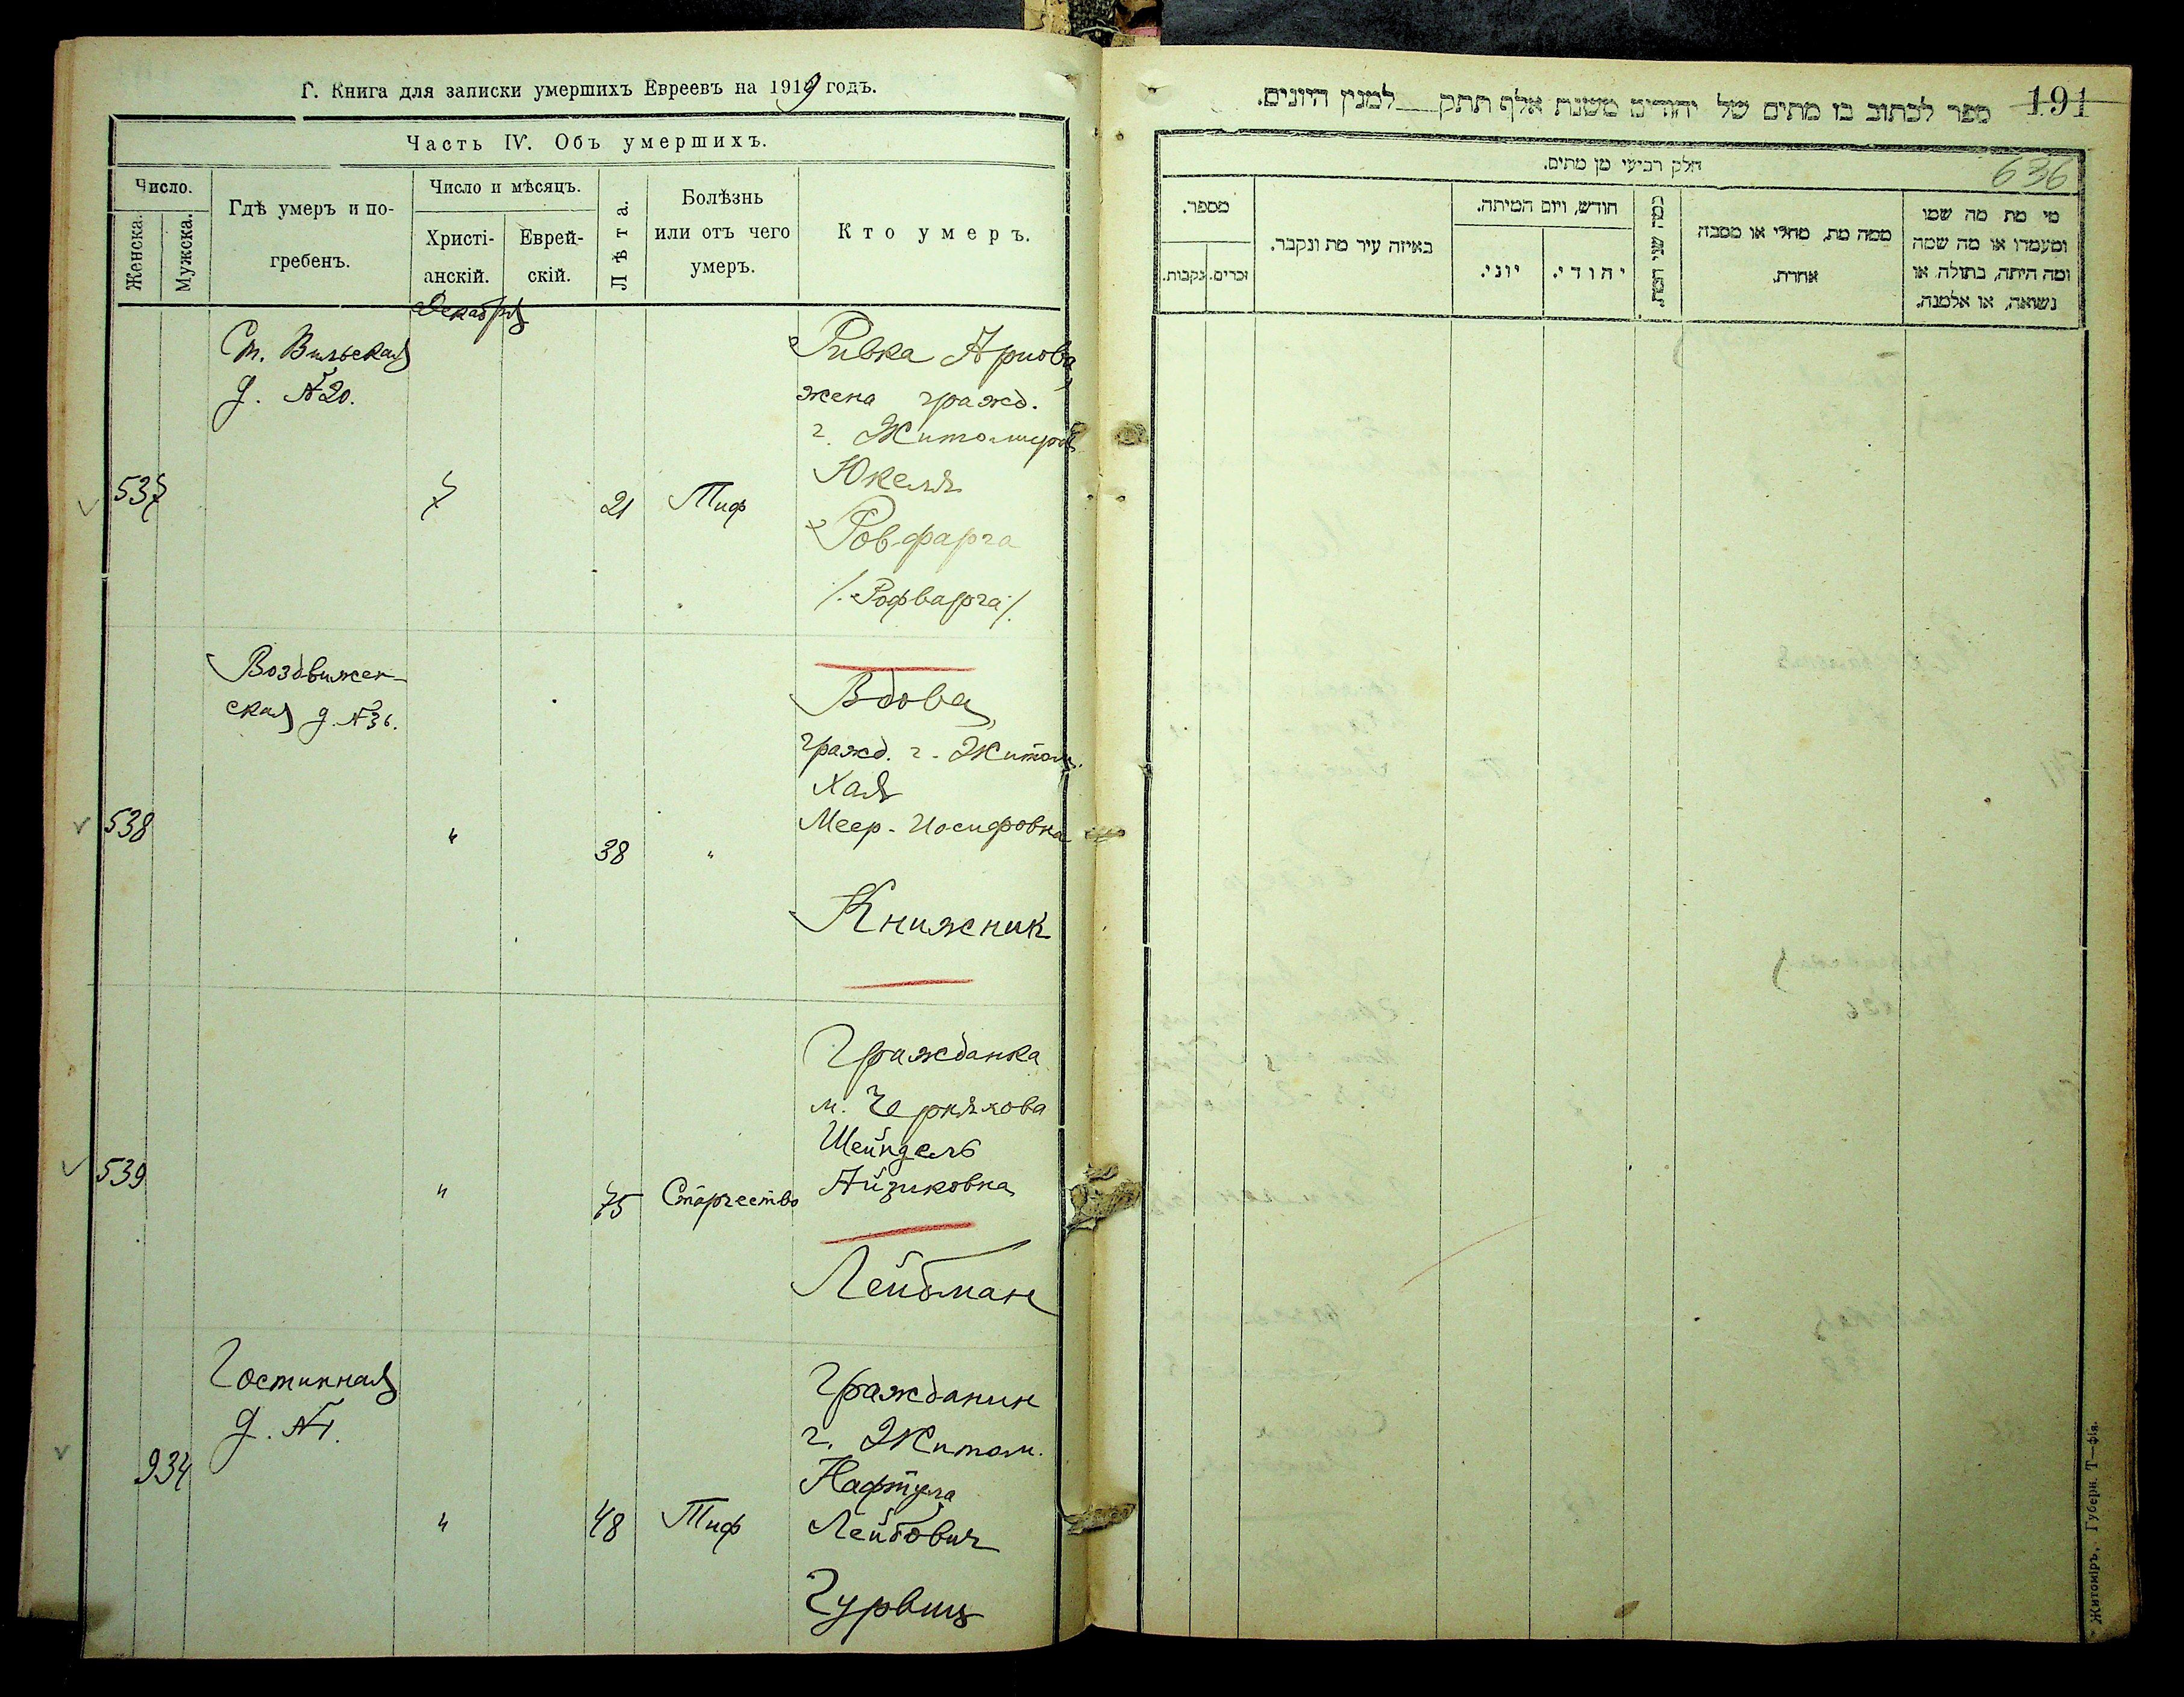 Г. Книга для записки умершихъ Евреевъ на 1919 годъ.
Часть IV. Объ умершихъ.
Число.
Женска.
Мужска.
Гдѣ умеръ и по-
гребенъ.
Число и мѣсяцъ.
Христі-
анскій.
Еврей-
скій.
Лѣта.
Болѣзнь
или отъ чего
умеръ.
Кто умеръ.
Декабря
537
Ст. Вильская
д. №20.
7
21
Тиф
Ривка Ариова
жена гражд.
г. Житомира
Юкеля
Ров-фарга
/. Рофварга ./
538
Воздвижен-
ская д. №36.
"
38
"
Вдова
гражд. г. Житом.
Хая
Меер-Иосифовна
Книжник
539
"
75
Старчество
Гражданка
м. Черняхова
Шейндель
Айзиковна
Лейбман
934
Гостинная
д. №1.
"
48
Тиф
Гражданин
г. Житом.
Нафтула
Лейбович
Гурвиц
ספר לכתוב בו מתים של יהודים משנת אלף תתק למנין היונים.
191
636
חלק רביעי מן מתים.
מספר.
נקבות.
זכרים.
באיזה עיר מת ונקבר.
חודש, ויום המיתה.
יוני.
יהודי.
כמה שני המת.
ממה מת, מחלי או מסבה
אחרת.
מי מת מה שמו
ומעמדו או מה שמה
ומה היתה, בתולה או
נשואה, או אלמנה.
Житоміръ, Губерн. Т—фія.